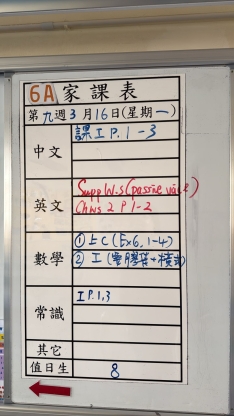 6A 家課表
第九週3月16日(星期一)
中文
課工P.1-3
英文
Supp W.s (passive voice)
Ch Ws 2 P 1-2
數學
①上C(Ex6, 1-4)
②工(
常識
工P.1,3
其它
值日生
8